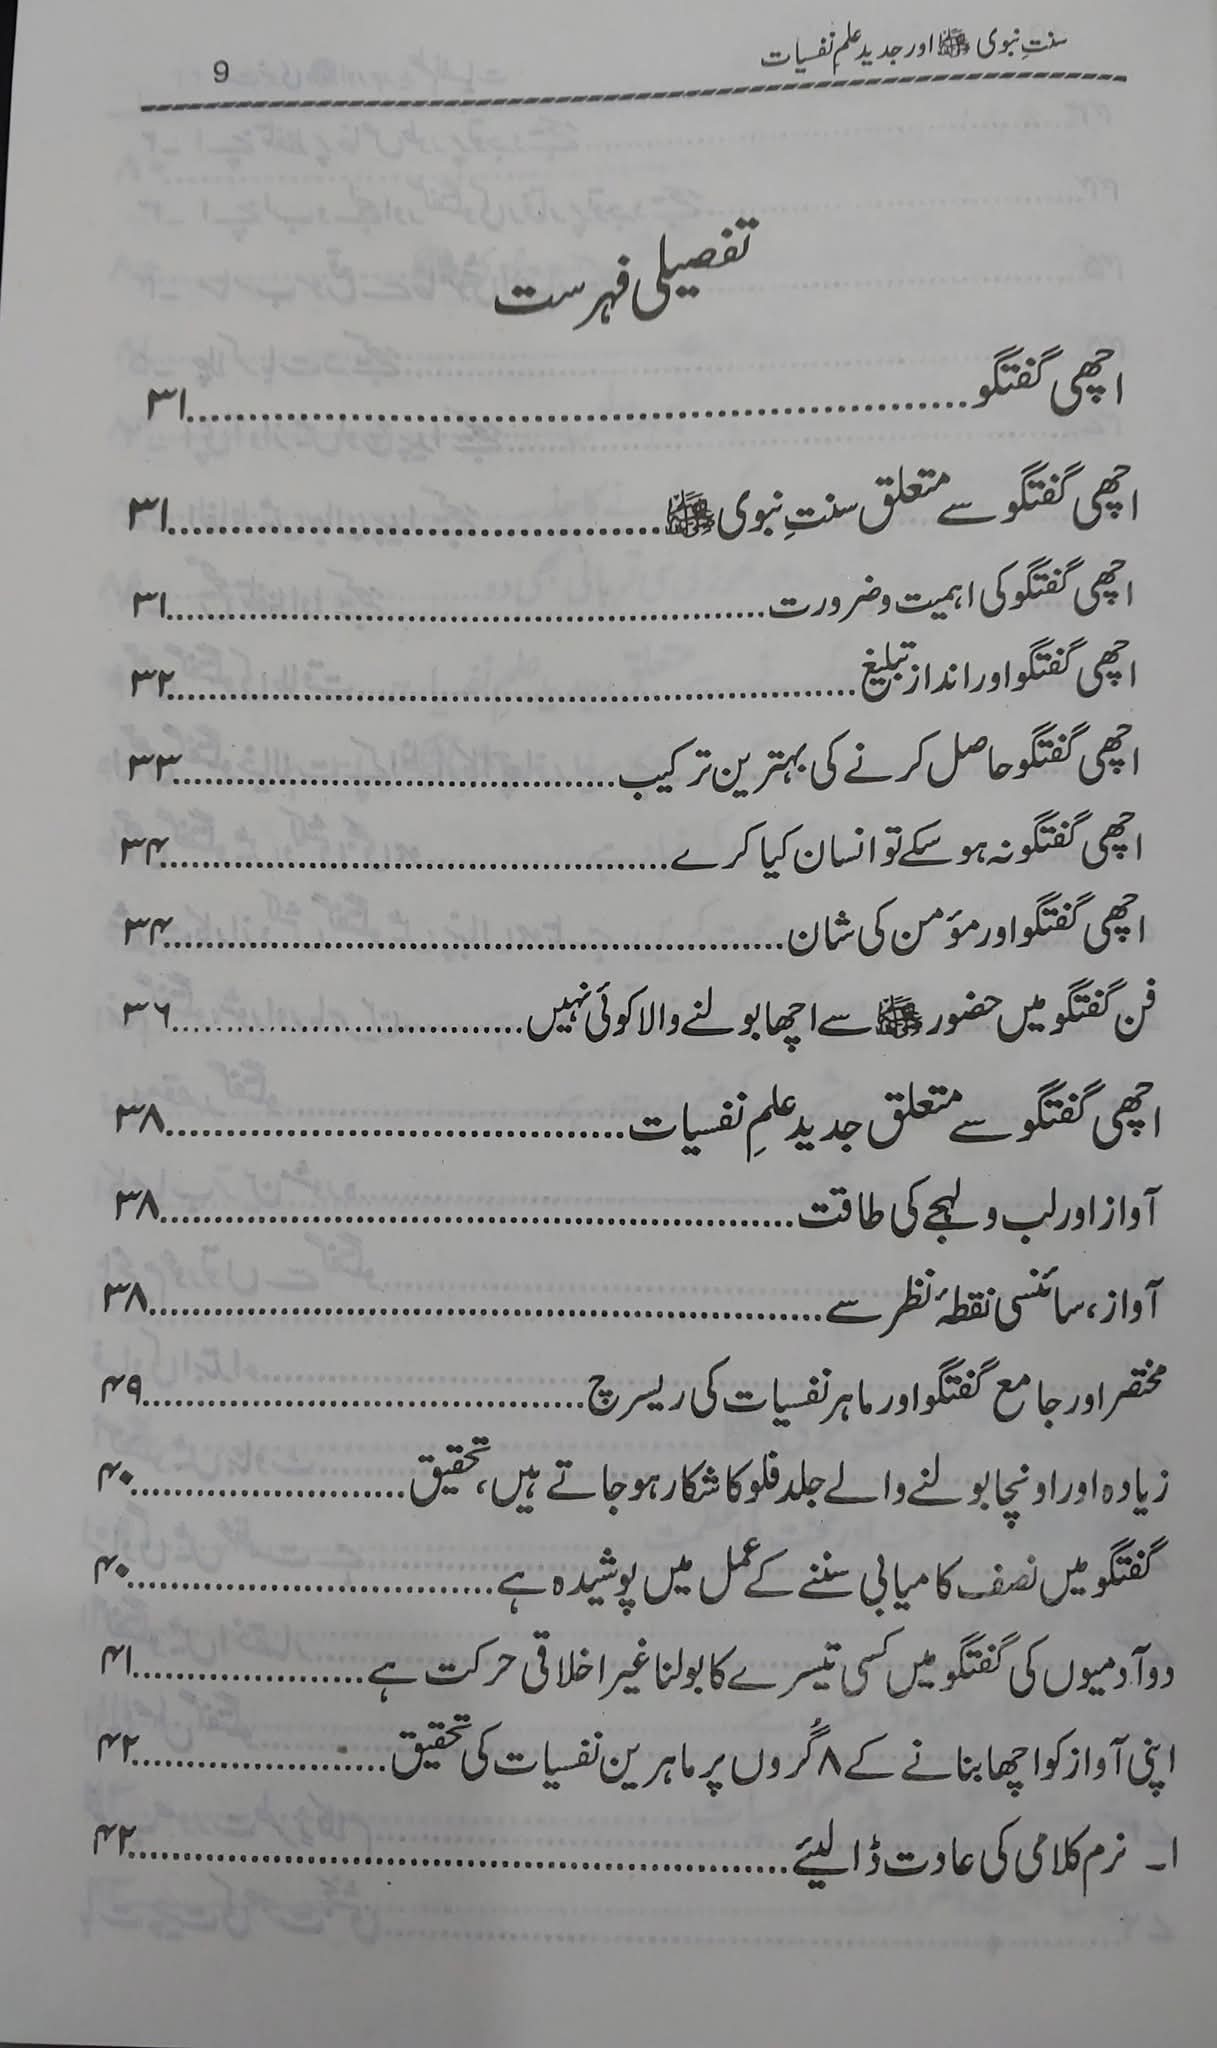 سنتِ نبوی ﷺ اور جدید علمِ نفسیات
9
تفصیلی فہرست
اچھی گفتگو................۳۱
اچھی گفتگو سے متعلق سنتِ نبوی ﷺ................۳۱
اچھی گفتگو کی اہمیت و ضرورت................۳۱
اچھی گفتگو اور اندازِ تبلیغ................۳۲
اچھی گفتگو حاصل کرنے کی بہترین ترکیب................۳۳
اچھی گفتگو نہ ہو سکے تو انسان کیا کرے................۳۴
اچھی گفتگو اور مؤمن کی شان................۳۴
فن گفتگو میں حضور ﷺ سے اچھا بولنے والا کوئی نہیں................۳۶
اچھی گفتگو سے متعلق جدید علمِ نفسیات................۳۸
آواز اور لب و لہجے کی طاقت................۳۸
آواز، سائنسی نقطۂ نظر سے................۳۸
مختصر اور جامع گفتگو اور ماہر نفسیات کی ریسرچ................۴۹
زیادہ اور اونچا بولنے والے جلد فلو کا شکار ہو جاتے ہیں، تحقیق................۴۰
گفتگو میں نصف کامیابی سننے کے عمل میں پوشیدہ ہے................۴۰
دو آدمیوں کی گفتگو میں کسی تیسرے کا بولنا غیر اخلاقی حرکت ہے................۴۱
اپنی آواز کو اچھا بنانے کے ۸ گُروں پر ماہرین نفسیات کی تحقیق................۴۲
۱۔ نرم کلامی کی عادت ڈالیئے................۴۲